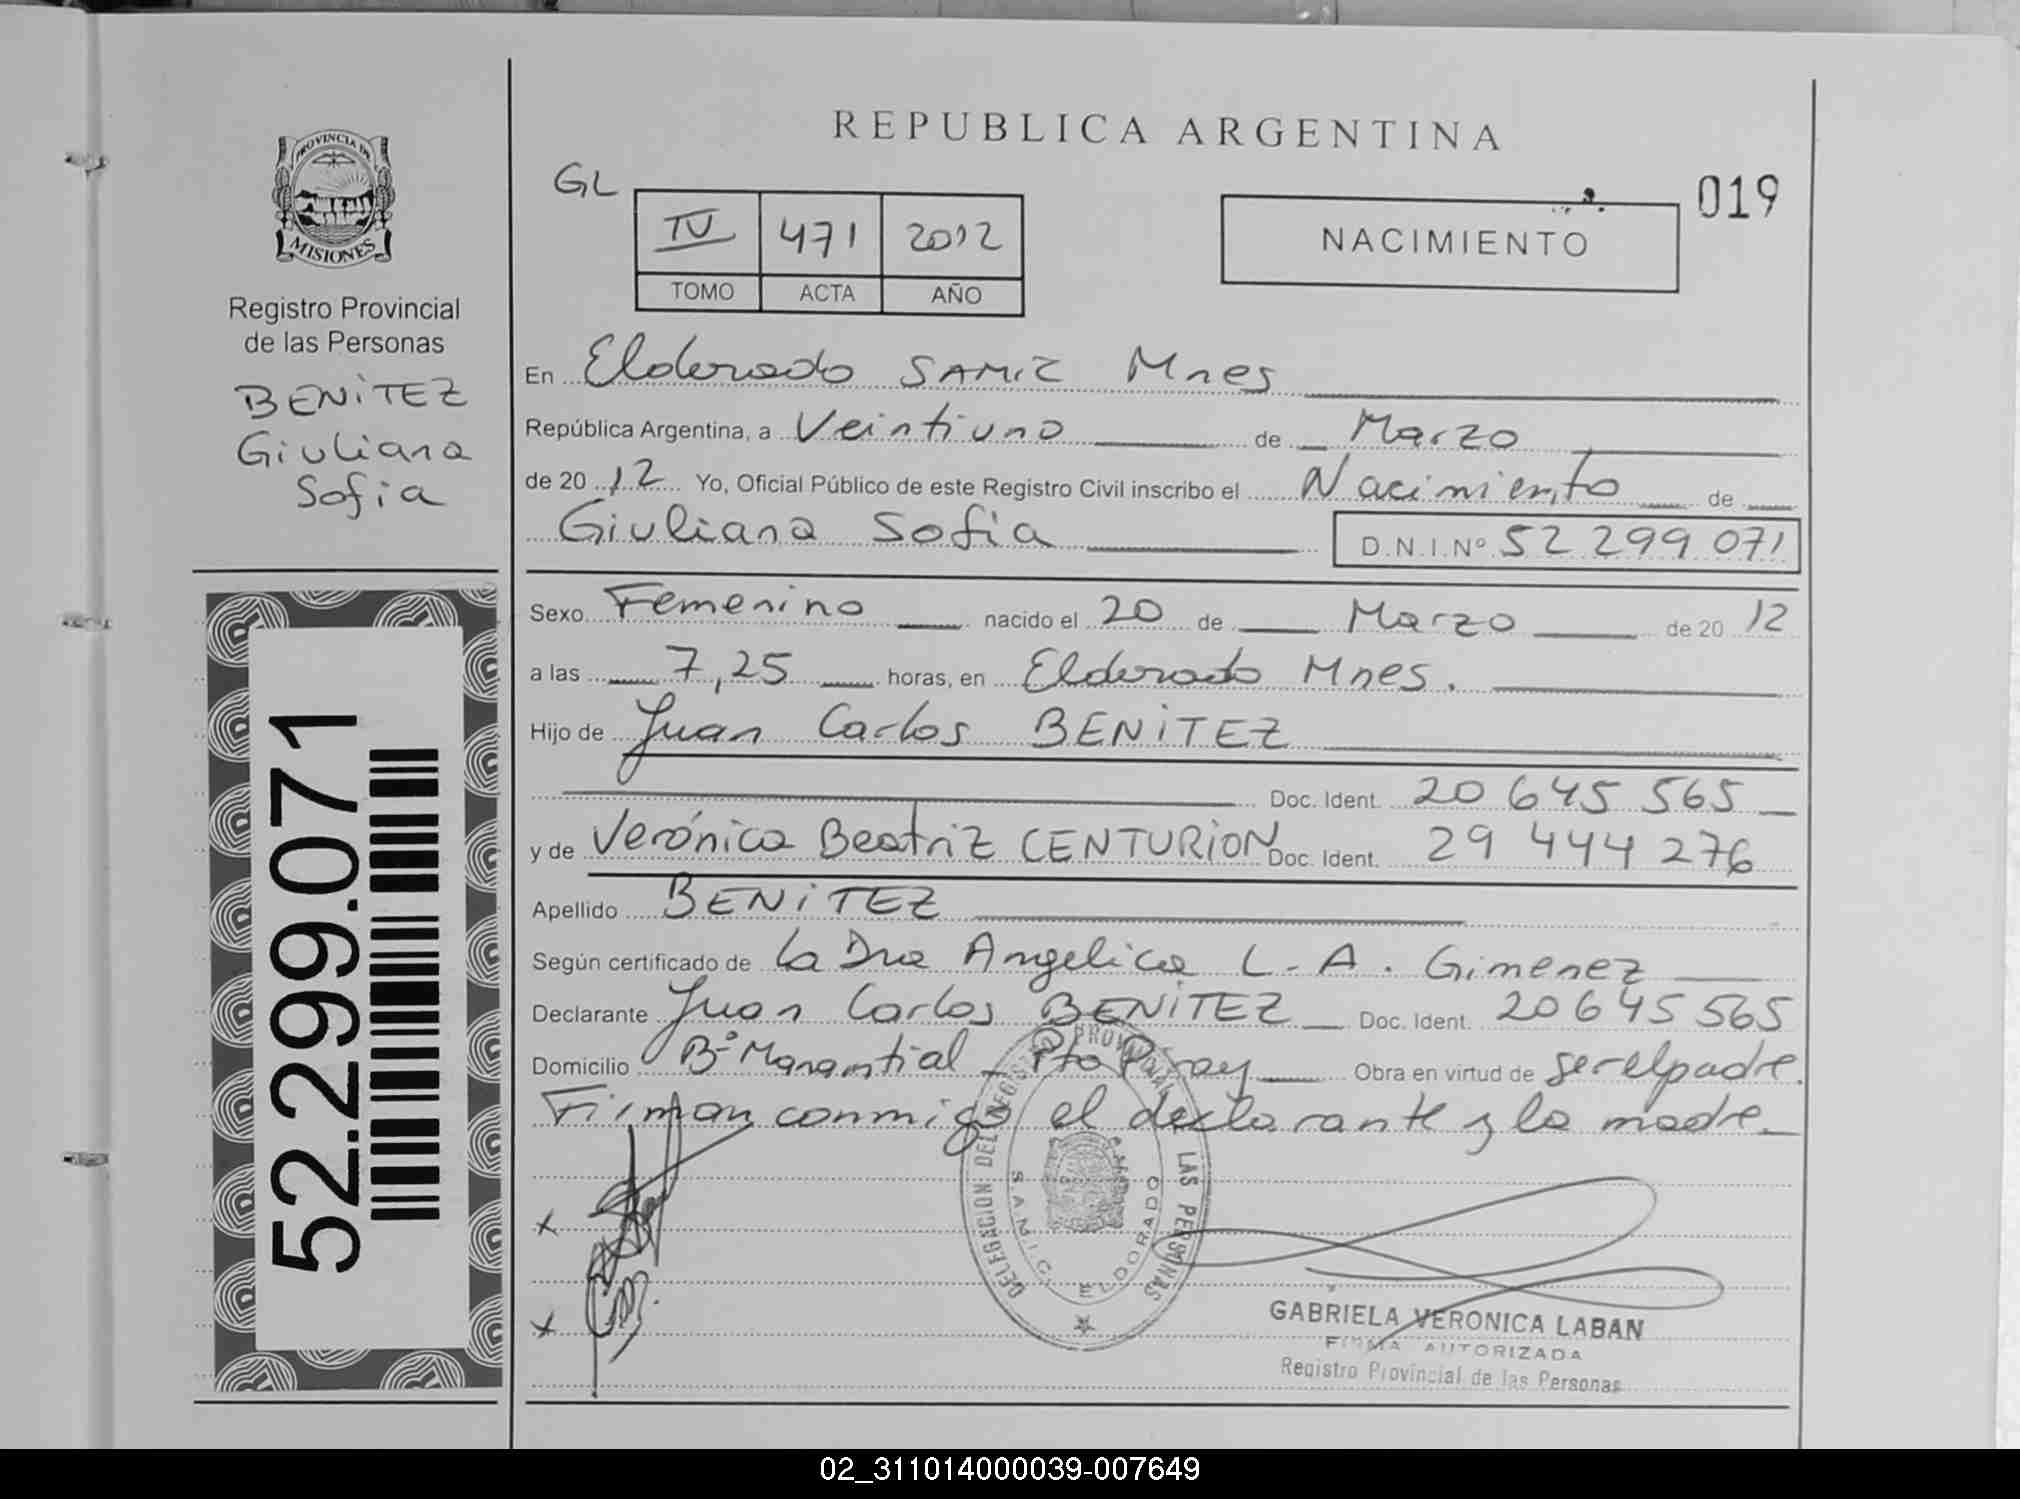 REPUBLICA ARGENTINA
PROVINCIA DE
MISIONES
Registro Provincial
de las Personas
BENITEZ
Giuliana
Sofia
52.299.071
GL
IV 471 2012
TOMO ACTA AÑO
NACIMIENTO
019
En Eldorado SAMIC Mnes
República Argentina, a Veintiuno de Marzo
de 2012 Yo, Oficial Público de este Registro Civil inscribo el Nacimiento de
Giuliana Sofia D.N.I.Nº 52 299 071
Sexo Femenino nacido el 20 de Marzo de 2012
a las 7,25 horas, en Eldorado Mnes.
Hijo de Juan Carlos BENITEZ
Doc. Ident. 20 645 565
y de Verónica Beatriz CENTURION Doc. Ident. 29 444 276
Apellido BENITEZ
Según certificado de La Dra Angelica L. A. Gimenez
Declarante Juan Carlos BENITEZ Doc. Ident. 20 645 565
Domicilio Bº Manantial - Pto Piray Obra en virtud de ser el padre.
Firman conmigo el declarante y la madre.
x
x
DELEGACION DEL REGISTRO PROVINCIAL LAS PERSONAS
S.A.M.I.C. ELDORADO
GABRIELA VERONICA LABAN
FIRMA AUTORIZADA
Registro Provincial de las Personas
02_311014000039-007649